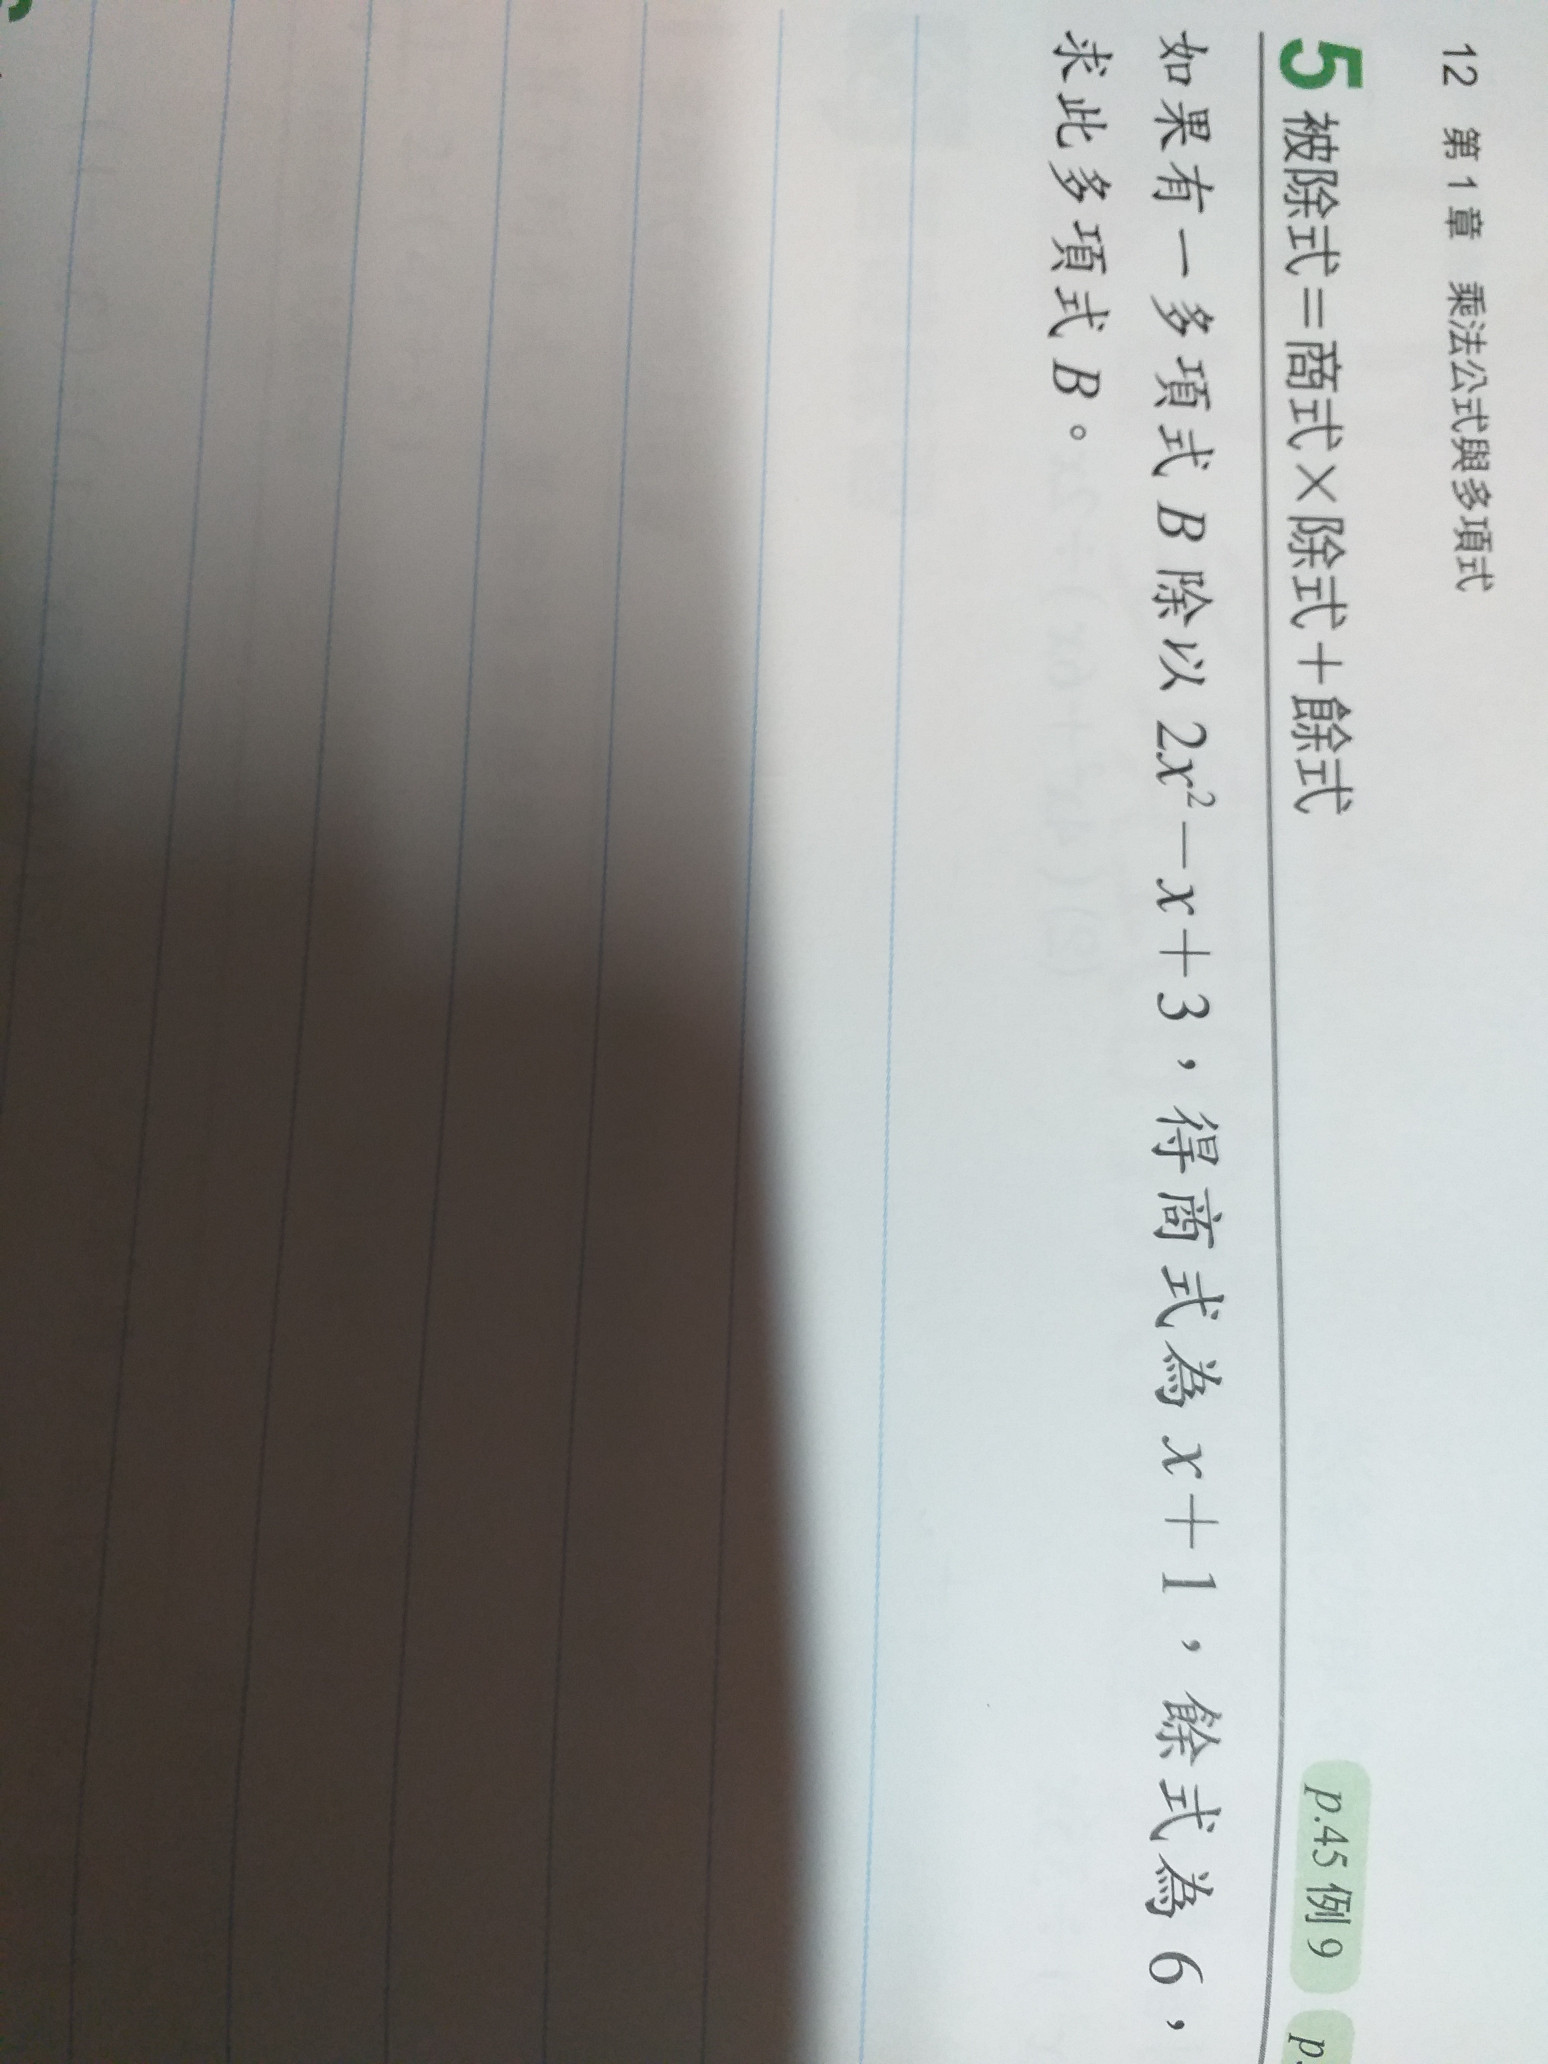 12 第1章 乘法公式與多項式
5 被除式＝商式×除式＋餘式 p.45例9 p.
如果有一多項式 B 除以 2x²－x＋3，得商式為 x＋1，餘式為 6，
求此多項式 B。